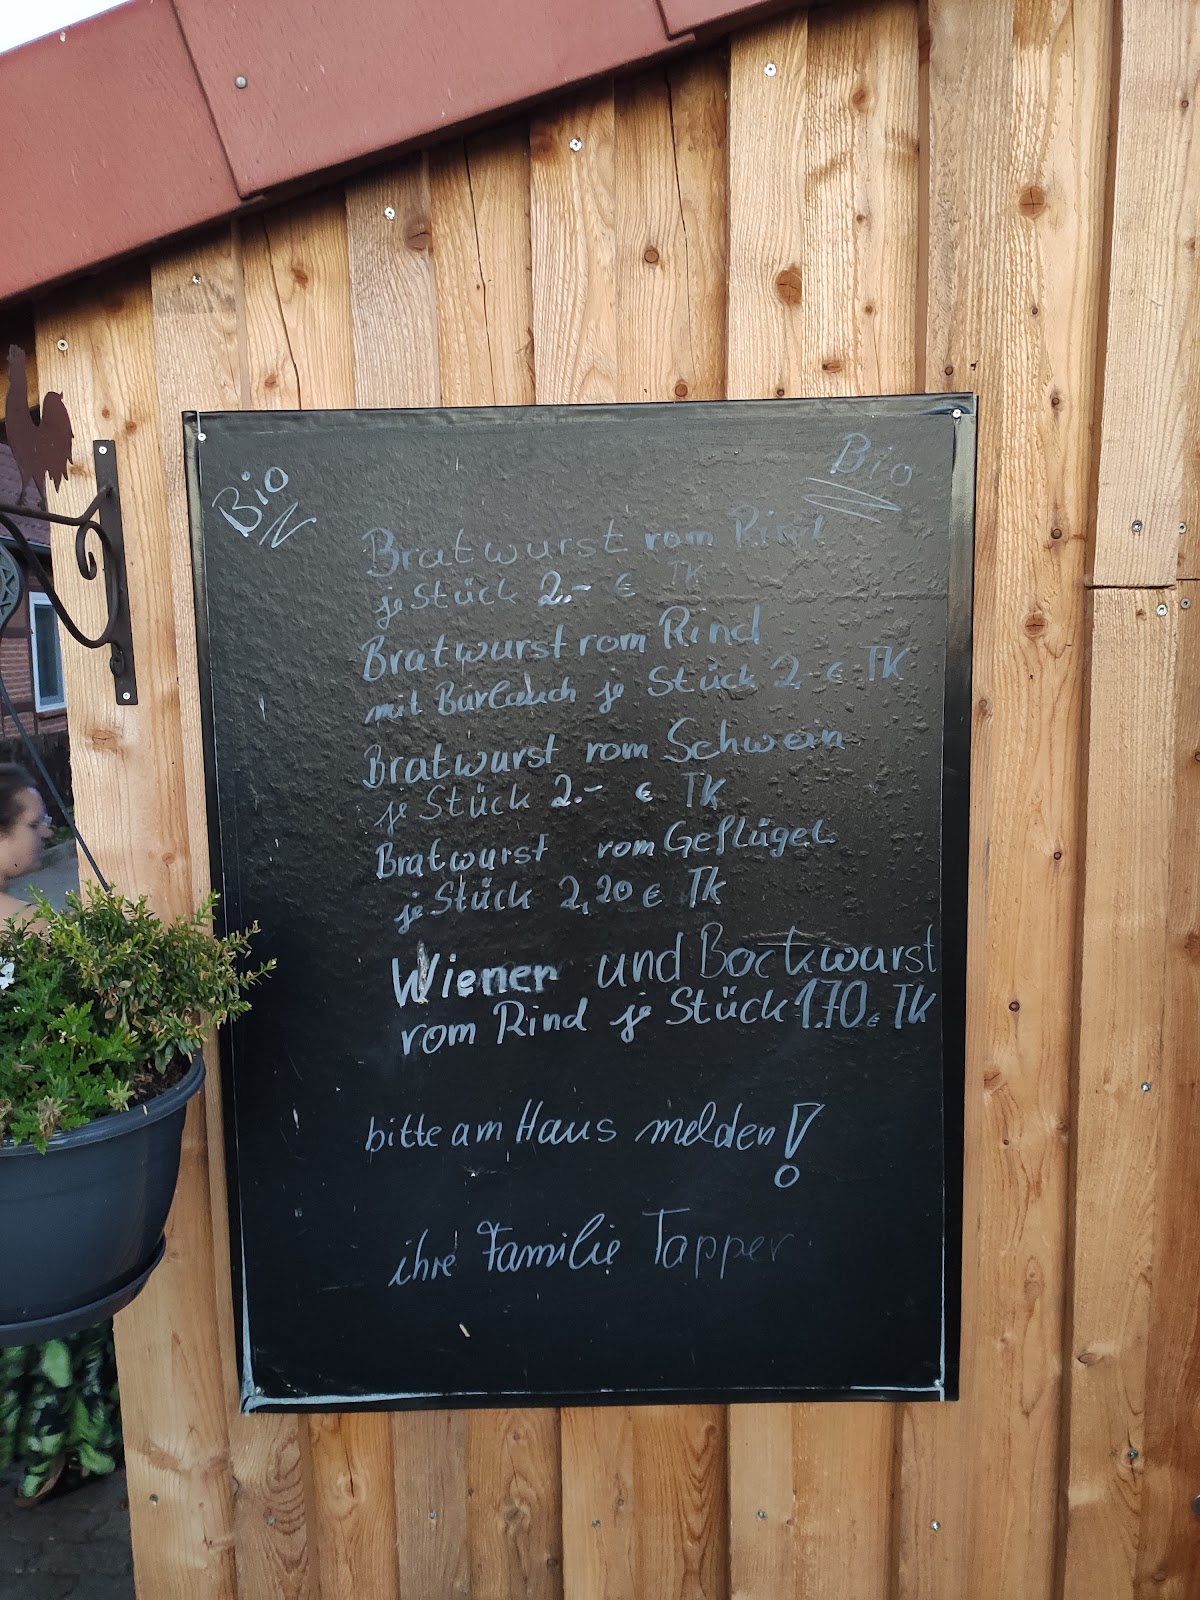 Bio
Bio
Bratwurst vom Rind
je Stück 2.- € TK
Bratwurst vom Rind
mit Bärlauch je Stück 2 € TK
Bratwurst vom Schwein
je Stück 2.- € TK
Bratwurst vom Geflügel
je Stück 2,20 € TK
Wiener und Bockwurst
vom Rind je Stück 1.70 € TK
bitte am Haus melden!
ihre Familie Tapper